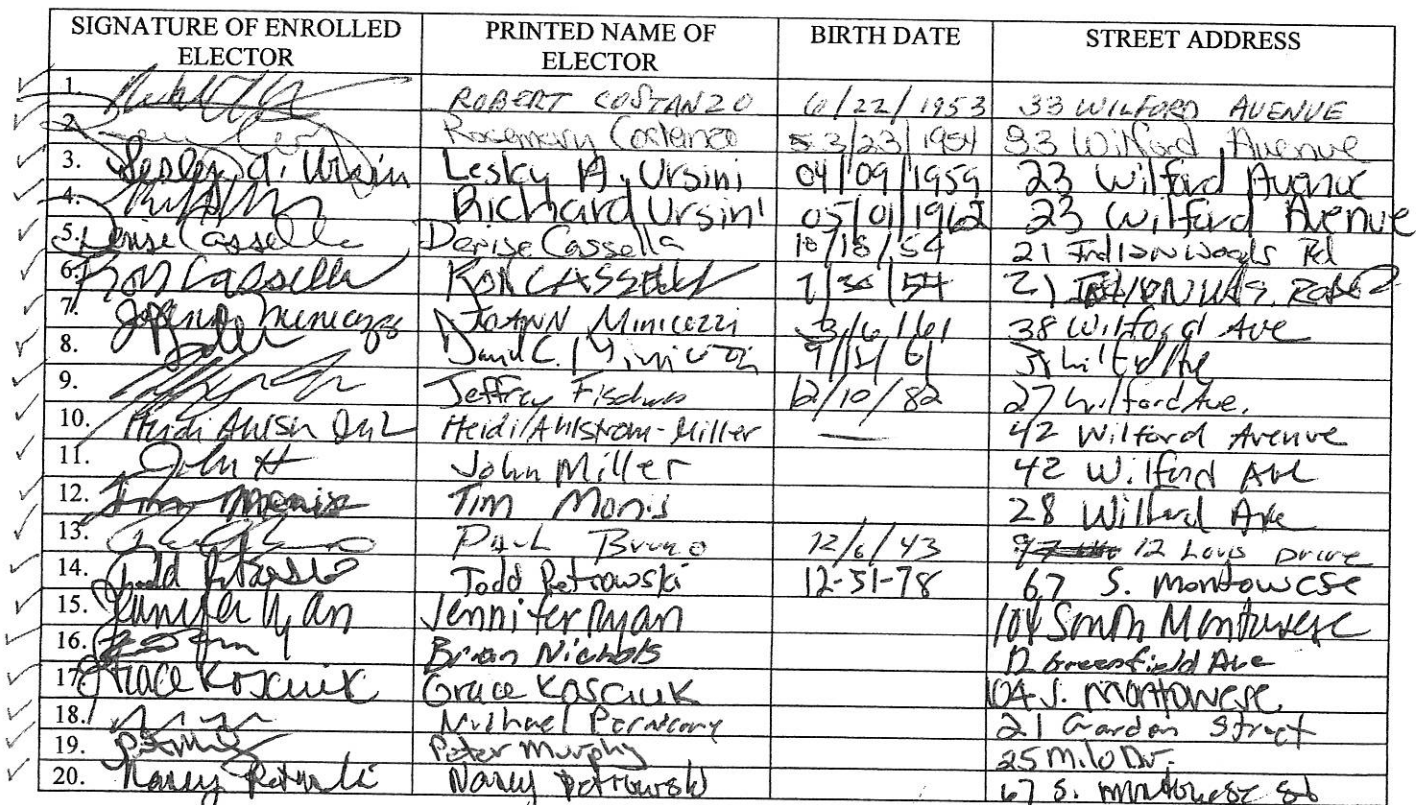 SIGNATURE OF ENROLLED ELECTOR PRINTED NAME OF ELECTOR BIRTH DATE STREET ADDRESS
1. ROBERT COSTANZO 6/22/1953 33 WILFORD AVENUE
2. Rosemary Costanzo 3/23/1954 33 Wilford Avenue
3. Lesley A. Ursini Lesley A. Ursini 04/09/1959 23 Wilford Avenue
4. Richard Ursini 05/01/1962 23 Wilford Avenue
5. Denise Cassella Denise Cassella 10/18/54 21 Indian Woods Rd
6. Ron Cassella RON CASSELLA 21
7. JoAnn Minicozzi JoANN Minicozzi 3/6/61 38 Wilford Ave
8. David C. Minicozzi 38 Wilford Ave
9. Jeffrey 12/10/82 27 Wilford Ave.
10. Heidi Heidi Ahlstrom-Miller — 42 Wilford Avenue
11. John John Miller 42 Wilford Ave
12. Tim Tim 28 Wilford Ave
13. Paul Bruno 12/6/43 12 Louis Drive
14. Todd Petrowski Todd Petrowski 12-31-78 67 S. Montowese
15. Jennifer Ryan Jennifer Ryan 104 South Montowese
16. Brian Nichols Greenfield Ave
17. Grace Kosciuk Grace Kosciuk 104 S. Montowese
18. Michael 21 Garden Street
19. Peter Murphy 25 Milo Dr.
20. Nancy Petrowski Nancy Petrowski 67 S. Montowese